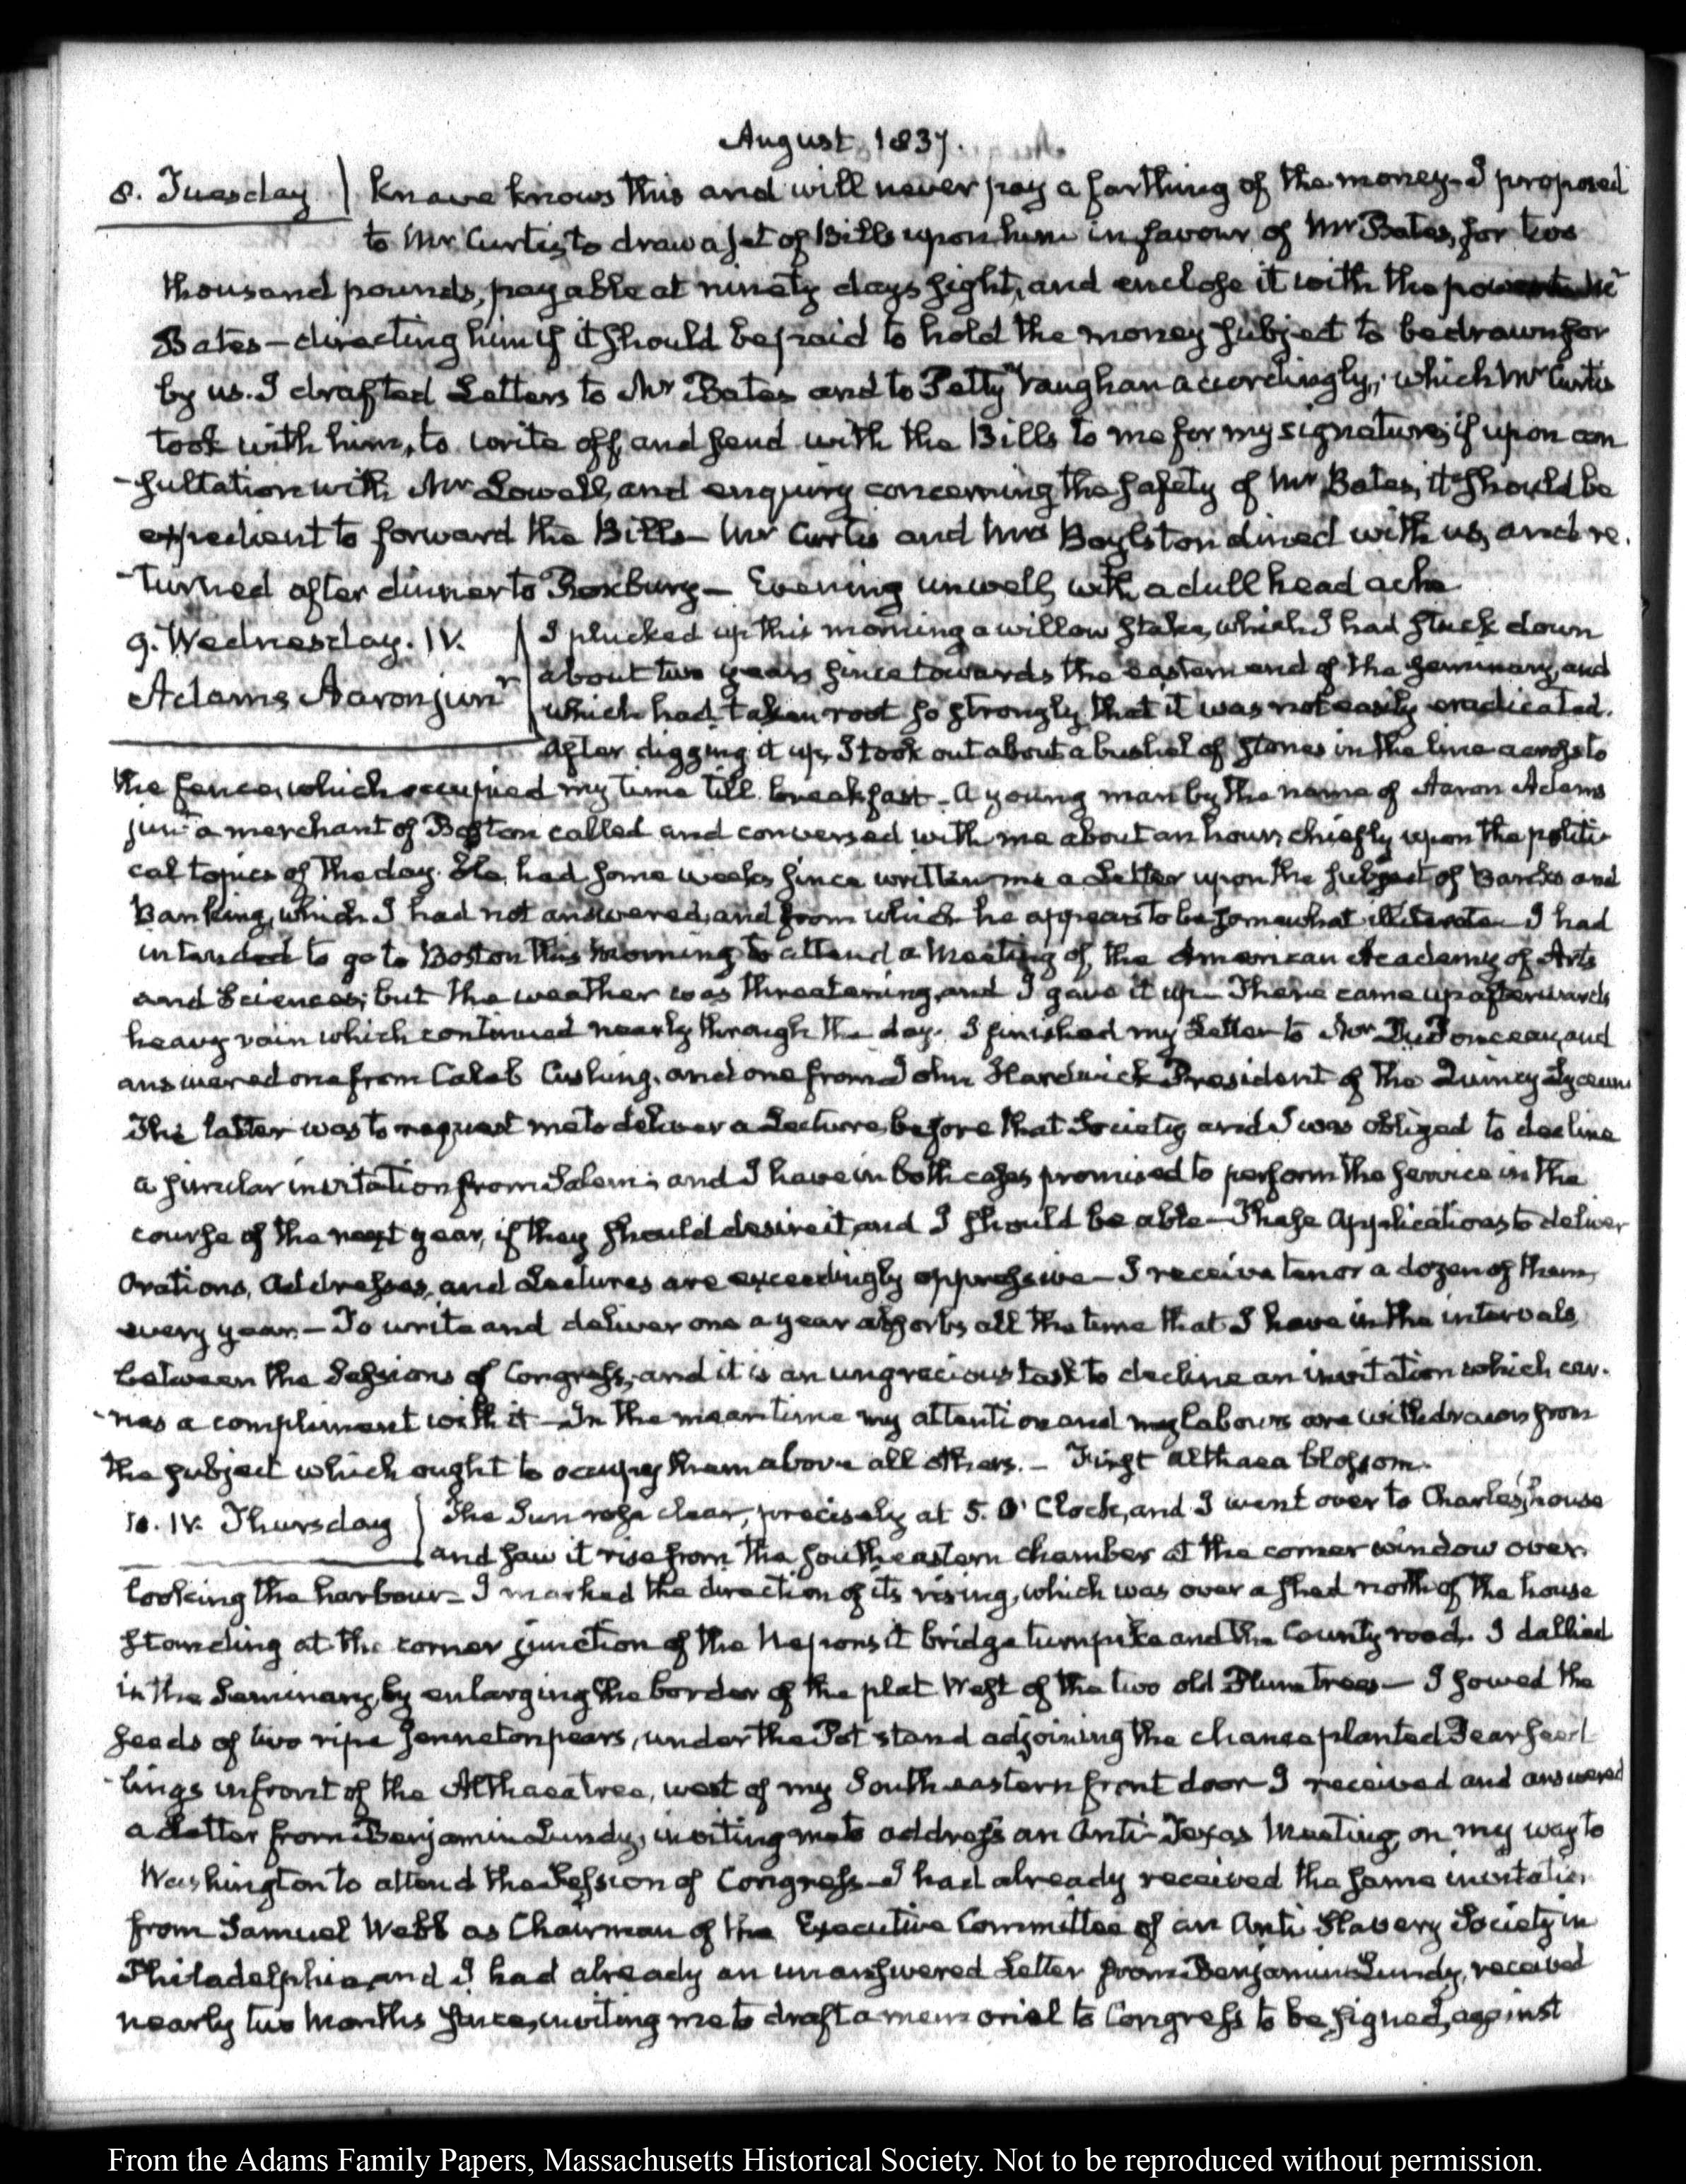 August 1837.
8. Tuesday knave knows this and will never pay a farthing of the money – I proposed
to Mr Curtis to draw a set of Bills upon him in favour of Mr Bates, for two
thousand pounds, payable at ninety days sight, and enclose it with the power to Mr
Bates – directing him if it should be paid to hold the money subject to be drawn for
by us. I drafted Letters to Mr Bates and to Petty Vaughan accordingly, which Mr Curtis
took with him, to write off, and send with the Bills to me for my signature; if upon con
-sultation with Mr Lowell, and enquiry concerning the safety of Mr Bates, it should be
expedient to forward the Bills – Mr Curtis and Mrs Boylston dined with us, and re.
-turned after dinner to Roxbury – Evening unwell, with a dull head ache
9. Wednesday. IV. I plucked up this morning a willow stake, which I had stuck down
about two years since towards the eastern end of the Seminary, and
Adams Aaron junr which had taken root so strongly that it was not easily eradicated.
After digging it up, I took out about a bushel of stones in the line across to
the fence, which occupied my time till breakfast – A young man by the name of Aaron Adams
junr a merchant of Boston called and conversed with me about an hour, chiefly upon the politi-
cal topics of the day. He had some weeks since written me a Letter upon the subject of Banks and
Banking, which I had not answered, and from which he appears to be somewhat illiterate I had
intended to go to Boston this Morning to attend a Meeting of the American Academy of Arts
and Sciences; but the weather was threatening, and I gave it up – There came up afterwards
heavy rain which continued nearly through the day. I finished my Letter to Mr Du Ponceau, and
answered one from Caleb Cushing, and one from John Hardwick President of the Quincy Lyceum
The latter was to request me to deliver a Lecture before that Society and I was obliged to decline
a similar invitation from Salem; and I have in both cases promised to perform the service in the
course of the next year, if they should desire it, and I should be able – These Applications to deliver
Orations, Addresses, and Lectures are exceedingly oppressive – I receive ten or a dozen of them,
every year – To write and deliver one a year absorbs all the time that I have in the intervals
between the Sessions of Congress; and it is an ungracious task to decline an invitation which car.
-ries a compliment with it – In the mean time my attention and my labours are withdrawn from
the subject which ought to occupy them above all others. – First Althaea blossom.
10. IV. Thursday The Sun rose clear, precisely at 5. O'Clock, and I went over to Charles's house
and saw it rise from the southeastern chamber at the corner window over
looking the harbour – I marked the direction of its rising, which was over a shed north of the house
standing at the corner junction of the Neponsit bridge turnpike and the County road. I dallied
in the Seminary, by enlarging the border of the plat West of the two old Plum trees – I sowed the
seeds of two ripe Jenneton pears, under the Pot stand adjoining the chance planted Pear seed-
-lings in front of the Althaea tree, west of my South eastern front door – I received and answered
a Letter from Benjamin Lundy, inviting me to address an Anti-Texas Meeting, on my way to
Washington to attend the Session of Congress – I had already received the same invitation
from Samuel Webb as Chairman of the Executive Committee of an Anti Slavery Society in
Philadelphia, and I had already an unanswered Letter from Benjamin Lundy, received
nearly two Months since, inviting me to draft a memorial to Congress to be signed, against
From the Adams Family Papers, Massachusetts Historical Society. Not to be reproduced without permission.